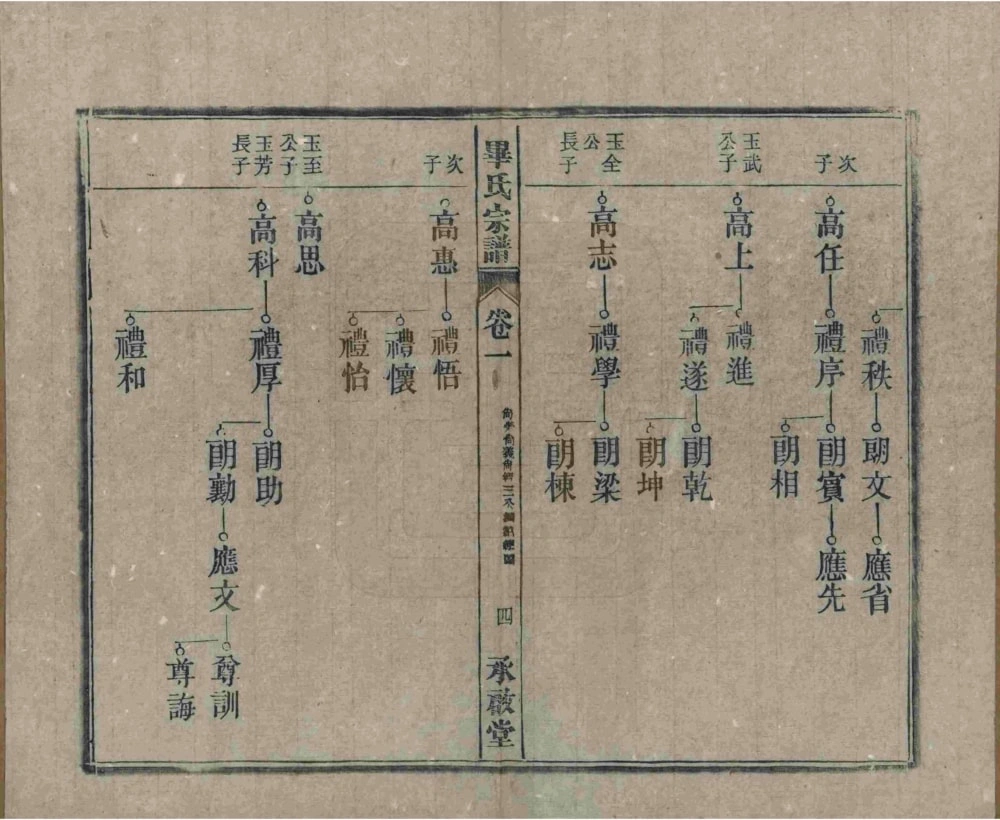 次子
高任
禮秩
禮序
朗文
朗賓
朗相
應省
應先
玉武公子
高上
禮進
禮遂
朗乾
朗坤
玉全公長子
高志
禮學
朗梁
朗棟
畢氏宗譜
卷一
四
承啟堂
次子
高惠
禮悟
禮懷
禮怡
玉至公子
高思
玉芳長子
高科
禮厚
禮和
朗助
朗勷
應文
尊訓
尊誨